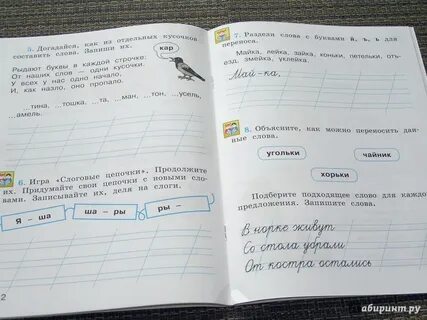 5. Догадайся, как из отдельных кусочков
составить слова. Запиши их.
кар
Рыдают буквы в каждой строчке:
От наших слов — одни кусочки.
У всех у нас одно начало,
И, как назло, оно пропало.
...тина, ...тошка, ...та, ...ман, ...тон, ...усель,
...амель.
6. Игра «Слоговые цепочки». Продолжите
их. Придумайте свои цепочки с новыми сло-
вами. Записывайте их, деля на слоги.
я – ша
ша – ры
ры –
2
7. Раздели слова с буквами й, ъ, ь для
переноса.
Майка, лейка, зайка, коньки, петельки, отъ-
езд, змейка, уклейка.
Май-ка,
8. Объясните, как можно переносить дан-
ные слова.
угольки
чайник
хорьки
Подберите подходящее слово для каждого
предложения. Запишите слова.
В норке живут
Со стола убрали
От костра остались
абиринт.ру